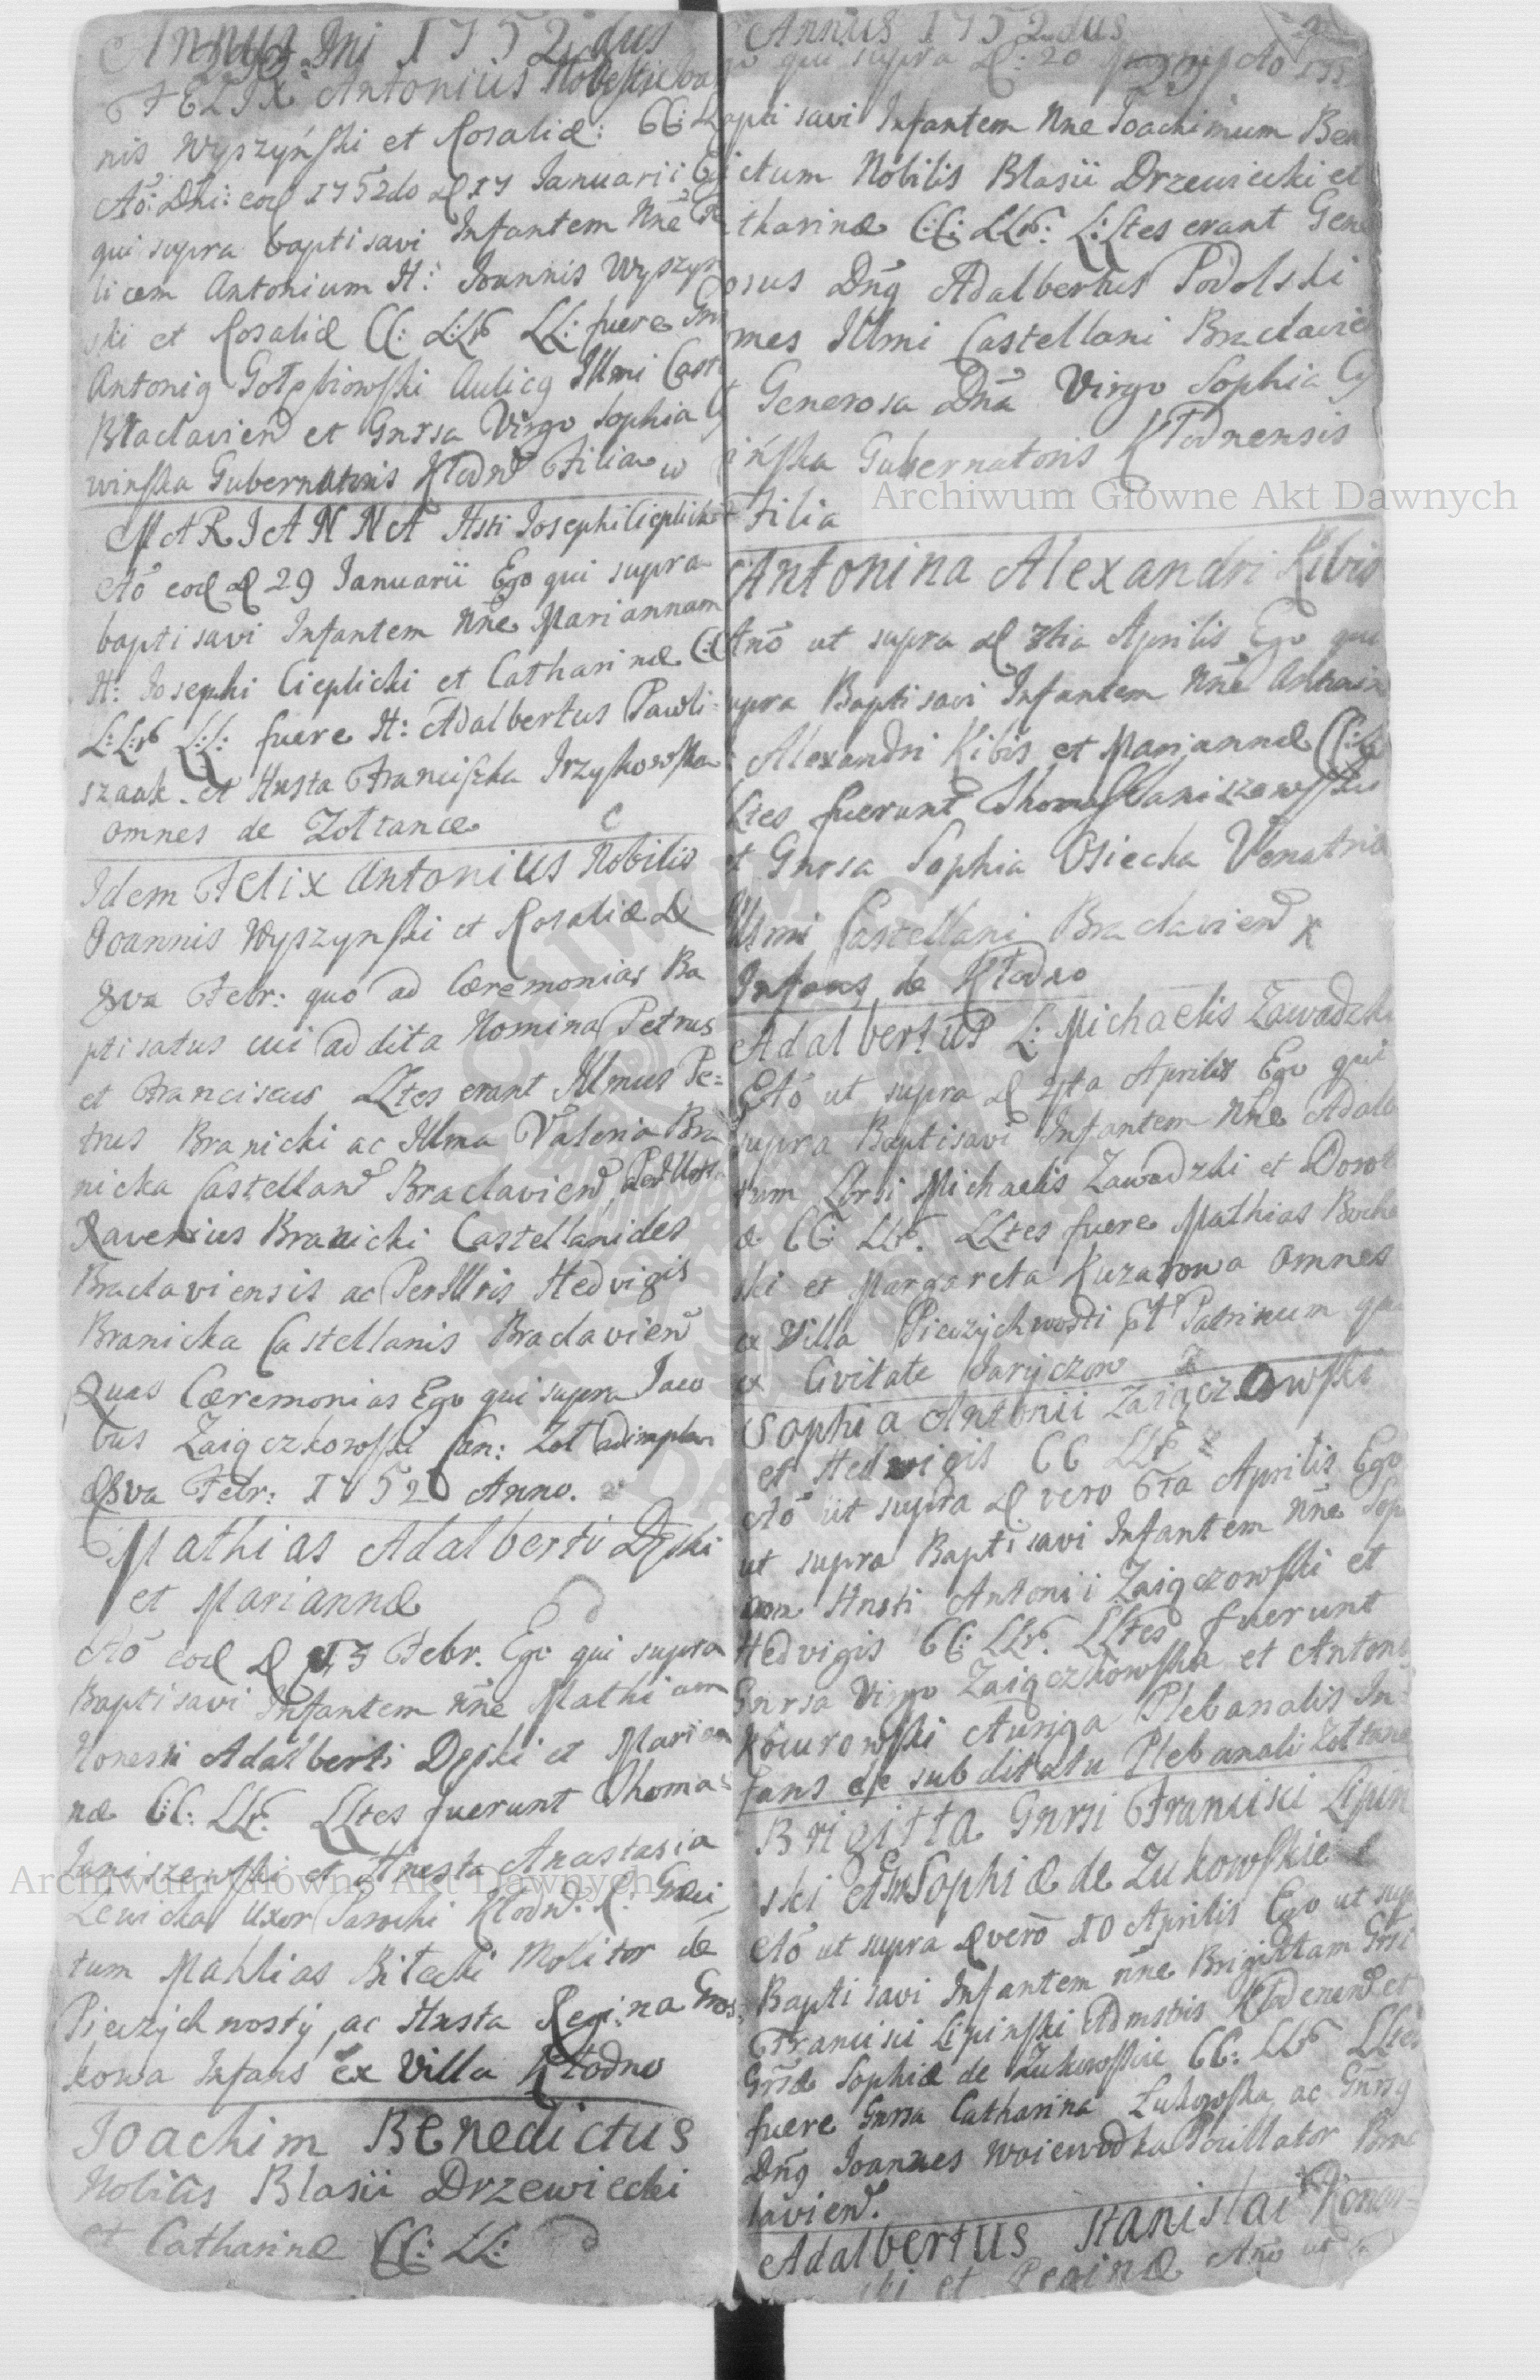 Annus Dni 1752dus
FELIX Antonius Nobilis Joan
nis Wyszyński et Rosaliæ: CC: LL
Aō: Dni: eod 1752do D 17 Januarii Eg
qui supra baptisavi Infantem Nne Fe
licem Antonium N: Joannis Wyszyn
ski et Rosaliæ CC: LLr LL: fuere Gn
Antonig Gołębiowski Aulicg Illmi Cast
Braclavien et Gnrsa Virgo Sophia
winska Gubernatoris Kłodn Filia
MARIANNA Hsti Josephi Cieplicki
Aō eod D 29 Januarii Ego qui supra
baptisavi Infantem Nne Mariannam
H: Josephi Cieplicki et Catharinæ CC
L:Lr L:L: fuere H: Adalbertus Pawli=
szaak et Hnsta Franciszka Irzykowska
omnes de Zoltance
Idem Felix Antonius Nobilis
Joannis Wyszynski et Rosaliæ D
8va Febr: quo ad Cæremonias Ba
ptisatus cui addita Nomina Petrus
et Franciscus LLtes erant Illmus Pe=
trus Branicki ac Illma Valeria Bra
nicka Castellan Braclavien,
Xaverius Branicki Castellanides
Braclaviensis ac PerIllris Hedvigis
Branicka Castellanis Braclavien
Quas Cæremonias Ego qui supra Jaco
bus Zaiączkowski Can: Zol adimplevi
8va Febr: 1752 Anno.
Mathias Adalberti Dęski
et Mariannæ
Aō eod D 13 Febr. Ego qui supra
Baptisavi Infantem Nne Mathiam
Honesti Adalberti Dęski et Marian
næ CC: LLr: LLtes fuerunt Thomas
Janiszewski et Hnesta Anastasia
Lewicka Uxor Parochi Kłodn: R: Græci
tum Mathias Bilecki Molitor de
Pieczychwosty, ac Hnsta Regina Gros
kowa Infans ex Villa Kłodno
Joachim Benedictus
Nobilis Blasii Drzewiecki
et Catharinæ CC: LL:
Annus 1752dus
qui supra D: 20
bapti savi Infantem Nne Joachimum Ben
ictum Nobilis Blasii Drzewiecki et
tharinæ CC: LLr: L:Ltes erant Gene
osus Dng Adalbertus Podolski
mes Illmi Castellani Braclavien
Generosa Dna Virgo Sophia
ińska Gubernatoris Kłodnensis
Filia
Antonina Alexandri Kibis
Anō ut supra D 3tia Aprilis Ego qui
supra Baptisavi Infantem Nne Antonin
Alexandri Kibis et Mariannæ CC: L
Ltes fuerunt Thomas Janiszewski
et Gnrsa Sophia Osiecka Venatrio
Illmi Castellani Braclavien
Infans de Kłodno
Adalbertus L: Michaelis Zawadzki
Aō ut supra D 4ta Aprilis Ego qui
supra Baptisavi Infantem Nne Adalb
tum Lbrsi Michaelis Zawadzki et Dorot
æ CC: LLr. LLtes fuere Mathias Boche
ski et Margareta Kuzarowa omnes
ex Villa Pieczychwosti Pt Patrinum
ex Civitate Jaryczow
Sophia Antonii Zaiączkowski
et Hedwigis CC LLr
Aō ut supra D vero 6ta Aprilis Ego
ut supra Baptisavi Infantem Nne Sop
am Hnsti Antonii Zaiączowski et
Hedvigis CC: LLr. LLtes fuerunt
Gnrsa Virgo Zaiączkowska et Antoni
Kocurowski Auriga Plebanalis In=
fans de subditatu Plebanali Zoltane
Brigitta Gnrsi Francisci Lipin
ski et Gnr Sophiæ de Zukowskie
Aō ut supra D verō 10 Aprilis Ego ut sup
Baptisavi Infantem nne Brigittam Grsi
Francisci Lipinski Admstris Kłodenen et
Grsæ Sophiæ de Zukowskie CC: LLr LLtes
fuere Gnrsa Catharina Zukowska ac Gnrsg
Dng Joannes Woiewodka Pocillator Brac
lavien.
Adalbertus Stanislai Konar=
ski et Reginæ Anō ut
Archiwum Główne Akt Dawnych
Archiwum Główne Akt Dawnych